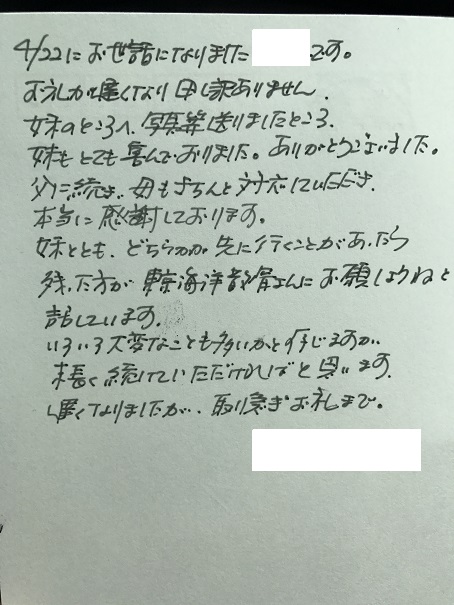 4/22にお世話になりました です。
お礼が遅くなり申し訳ありません。
妹のところへ、写真等送りましたところ、
妹もとても喜んでおりました。ありがとうございました。
父に続き、母もきちんと対応していただき、
本当に感謝しております。
妹とも、どちらかが先に行くことがあったら
残った方が東京海洋散骨さんにお願いしようねと
話しています。
いろいろ大変なことも多いかと存じますが、
末長く続けていただければと思います。
遅くなりましたが、取り急ぎお礼まで。